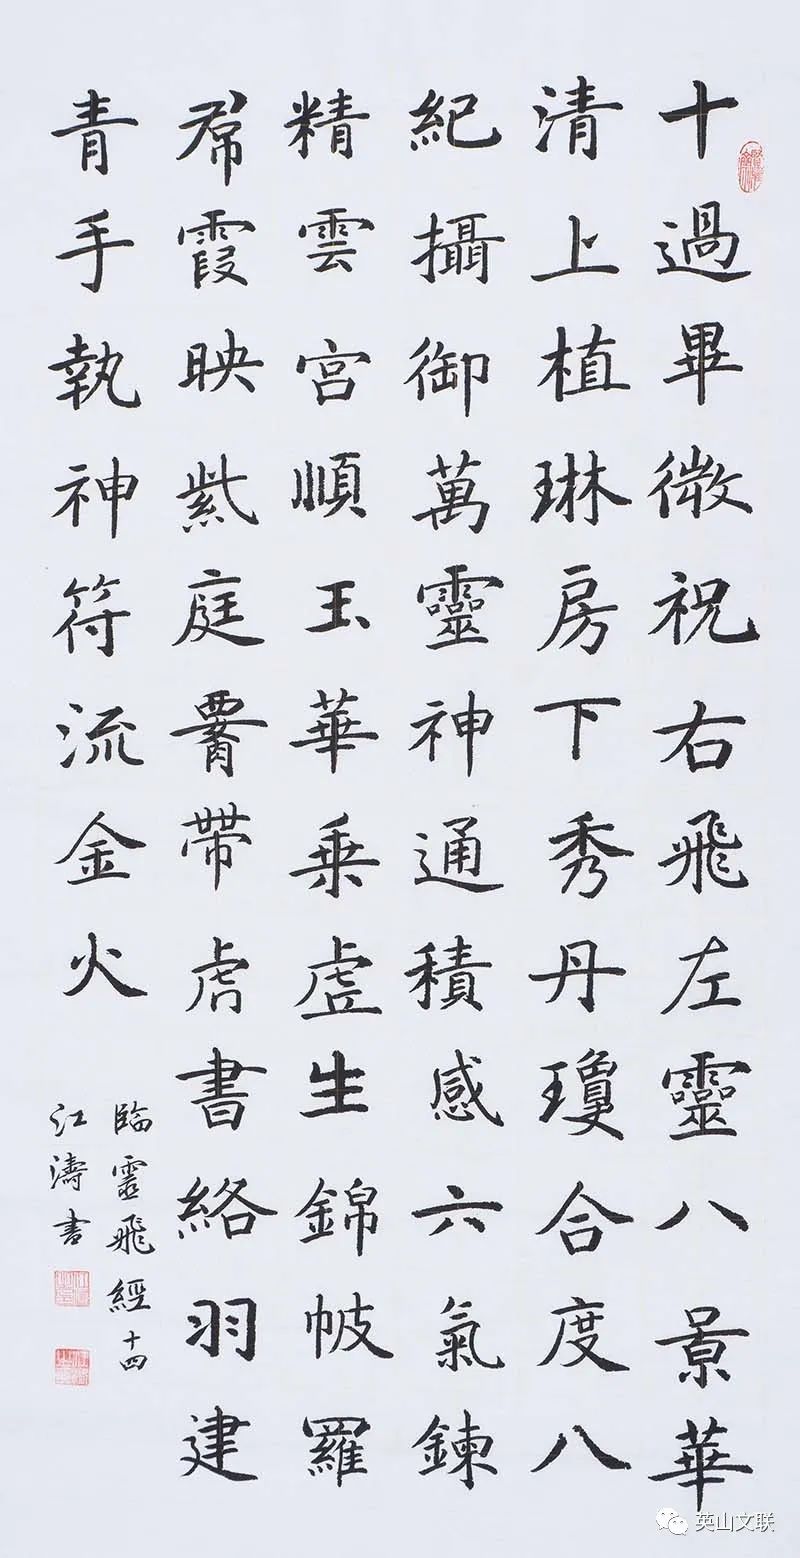 十過畢微祝右飛左靈八景華
清上植琳房下秀丹瓊合度八
紀攝御萬靈神通積感六氣鍊
精雲宮順玉華乘虛生錦帔羅
帬霞映紫庭腰帶虎書絡羽建
青手執神符流金火
臨靈飛經十四
江濤書
英山文联